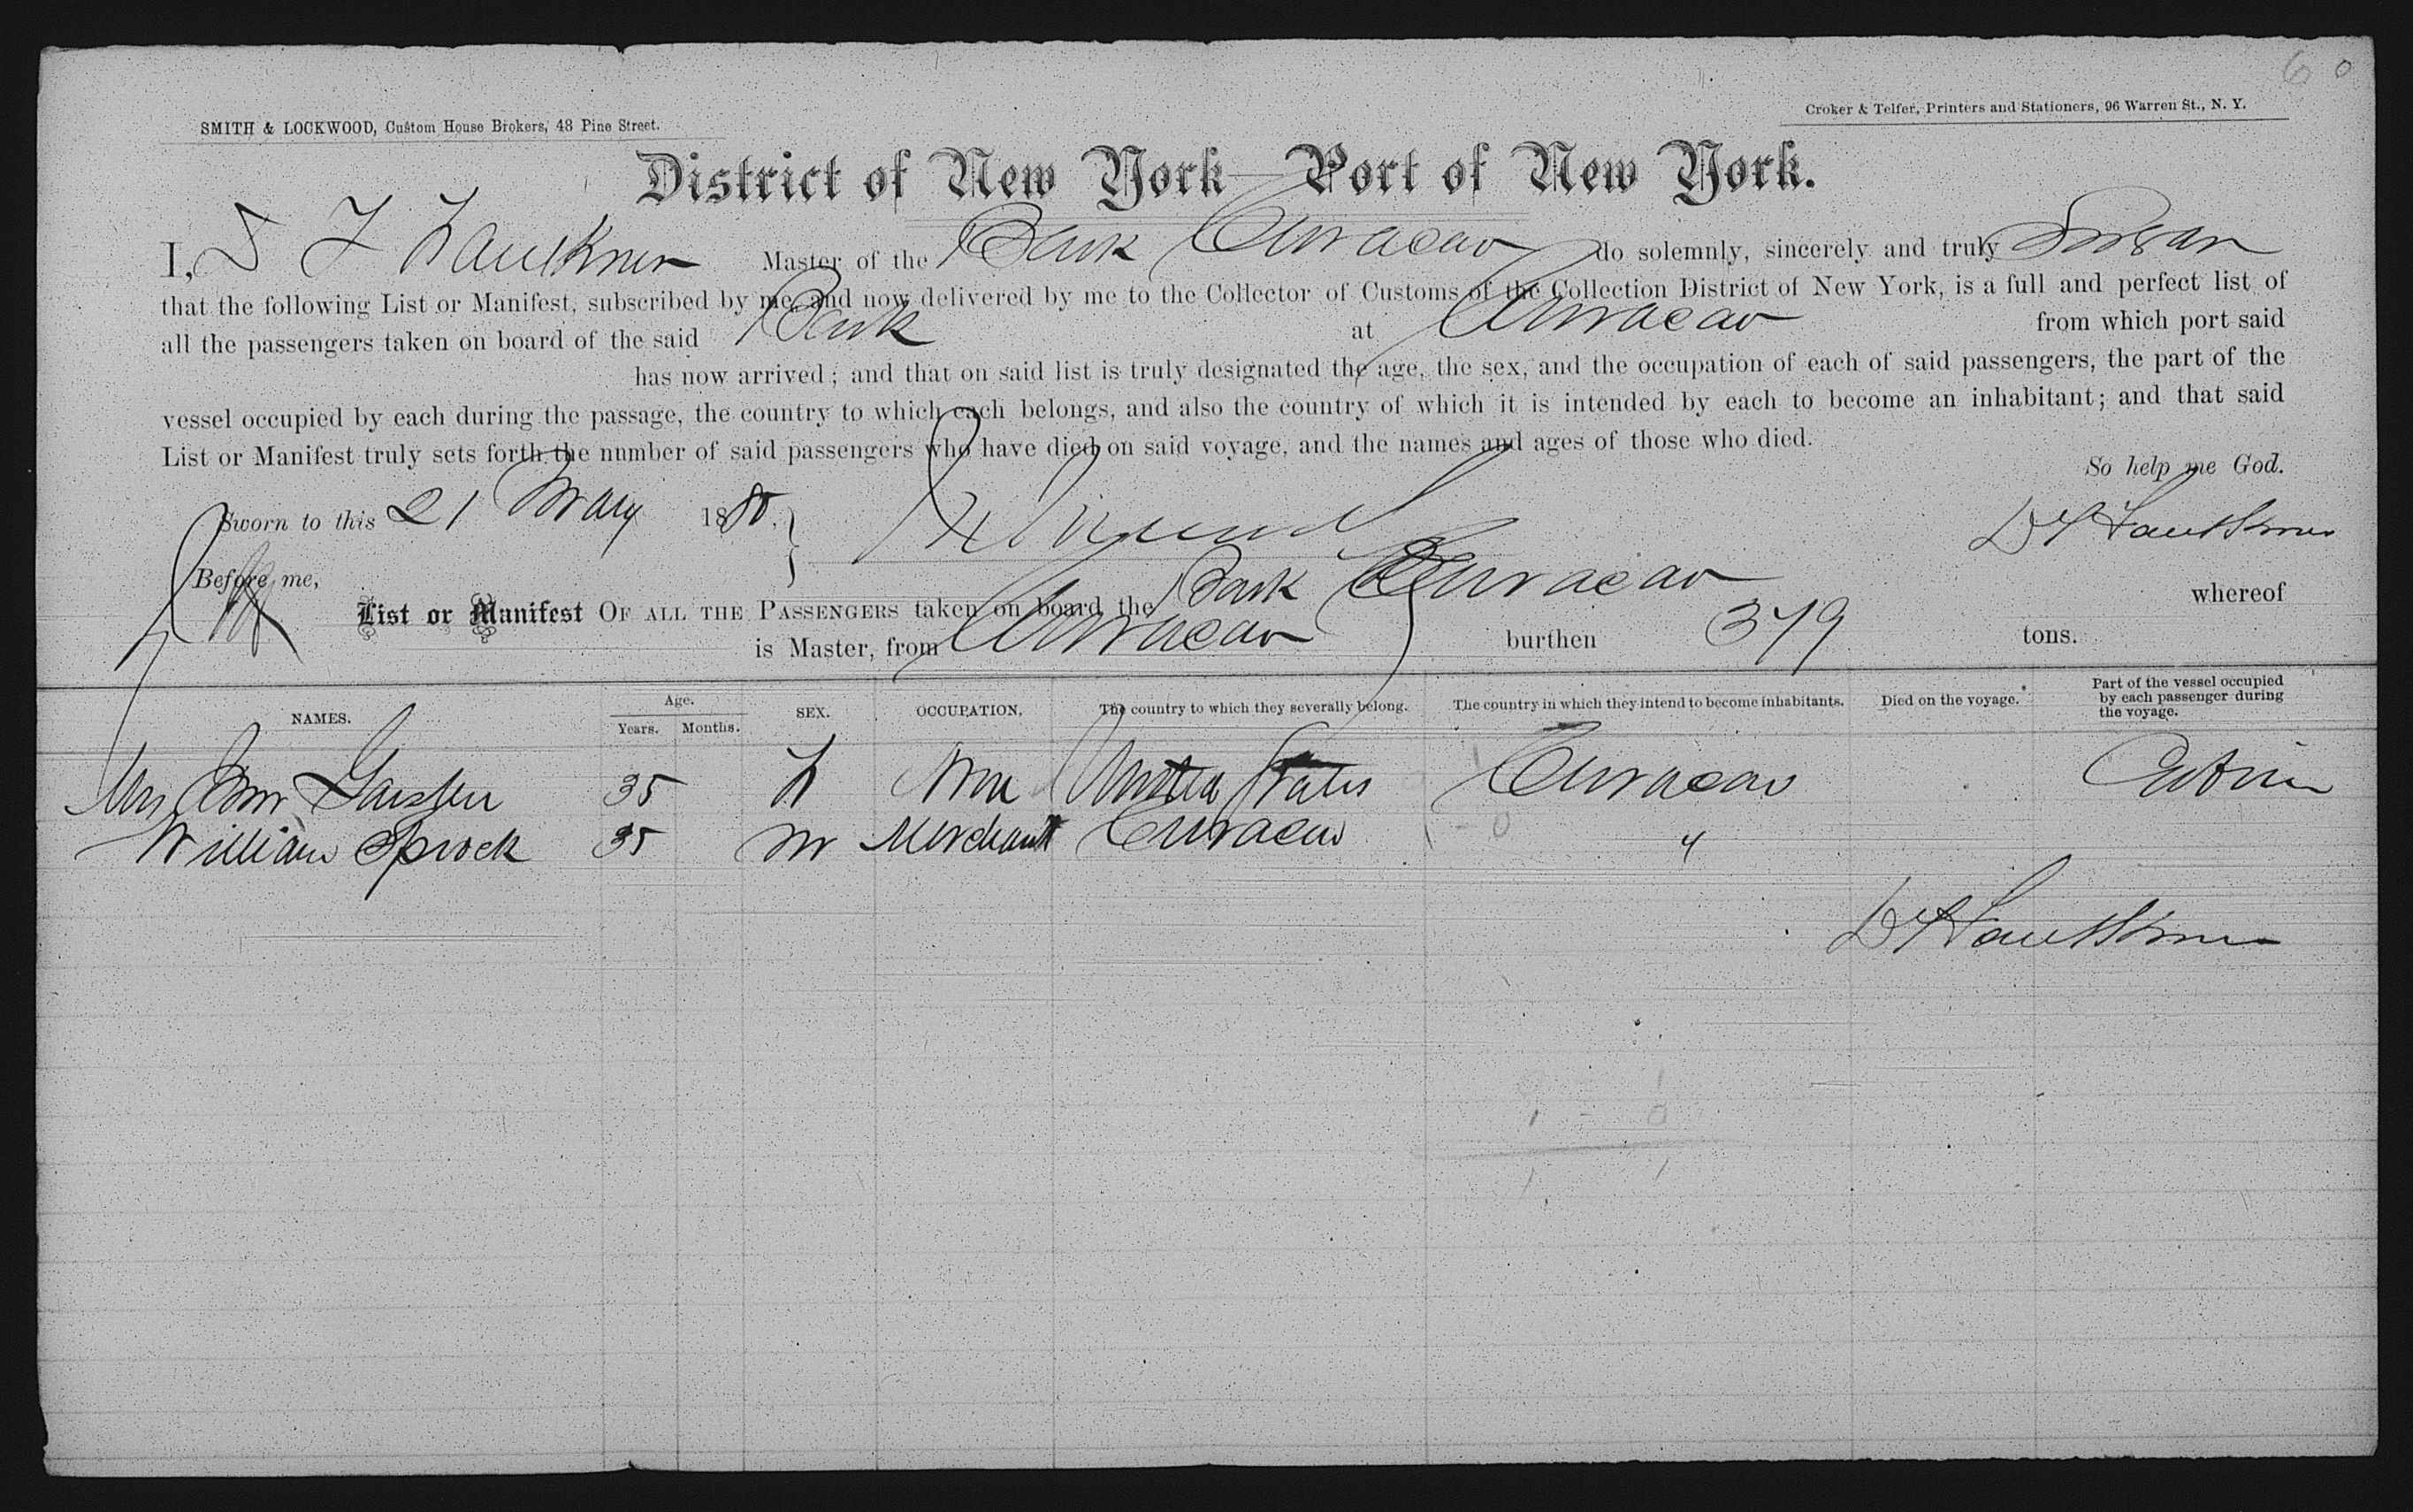 60
SMITH & LOCKWOOD, Custom House Brokers, 48 Pine Street.
Croker & Telfer, Printers and Stationers, 96 Warren St., N. Y.
District of New York—Port of New York.
I, D F Faulkner Master of the Bark Curacao do solemnly, sincerely and truly Swear
that the following List or Manifest, subscribed by me, and now delivered by me to the Collector of Customs of the Collection District of New York, is a full and perfect list of
all the passengers taken on board of the said Bark at Curacao from which port said
has now arrived; and that on said list is truly designated the age, the sex, and the occupation of each of said passengers, the part of the
vessel occupied by each during the passage, the country to which each belongs, and also the country of which it is intended by each to become an inhabitant; and that said
List or Manifest truly sets forth the number of said passengers who have died on said voyage, and the names and ages of those who died.
So help me God.
Sworn to this 21 May 1880.
D F Faulkner
Before me,
List or Manifest OF ALL THE PASSENGERS taken on board the Bark Curacao whereof
is Master, from Curacao burthen 379 tons.
NAMES. Age. Years. Months. SEX. OCCUPATION. The country to which they severally belong. The country in which they intend to become inhabitants. Died on the voyage. Part of the vessel occupied by each passenger during the voyage.
Mrs Wm 35 F None United States Curacao Cabin
William Sprock 35 M Merchant Curacao "
D F Faulkner